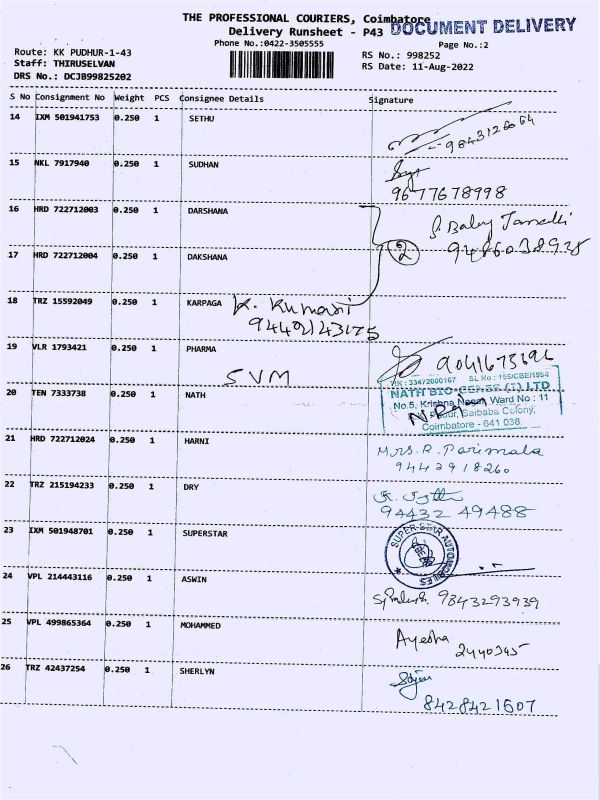 THE PROFESSIONAL COURIERS, Coimbatore
DOCUMENT DELIVERY
Delivery Runsheet - P43
Phone No.:0422-3505555
Page No.:2
Route: KK PUDHUR-1-43
RS No.: 998252
Staff: THIRUSELVAN
RS Date: 11-Aug-2022
DRS No.: DCJB99825202
S No Consignment No Weight PCS Consignee Details Signature
14 IXM 501941753 0.250 1 SETHU
9843126064
15 NKL 7917940 0.250 1 SUDHAN
9677678998
16 HRD 722712003 0.250 1 DARSHANA
2
17 HRD 722712004 0.250 1 DAKSHANA
18 TRZ 15592049 0.250 1 KARPAGA K. Kumari
19 VLR 1793421 0.250 1 PHARMA
SVM
20 TEN 7333738 0.250 1 NATH
No.5, Krishna Nagar, Ward No : 11
Saibaba Colony,
Coimbatore - 641 038.
21 HRD 722712024 0.250 1 HARNI
Mrs. R. Parimala
9442918260
22 TRZ 215194233 0.250 1 DRY
94432 49488
23 IXM 501948701 0.250 1 SUPERSTAR
SUPER STAR AUTOMOBILES
24 VPL 214443116 0.250 1 ASWIN
9843293939
25 VPL 499865364 0.250 1 MOHAMMED
Ayesha
2440345
26 TRZ 42437254 0.250 1 SHERLYN
8428421507